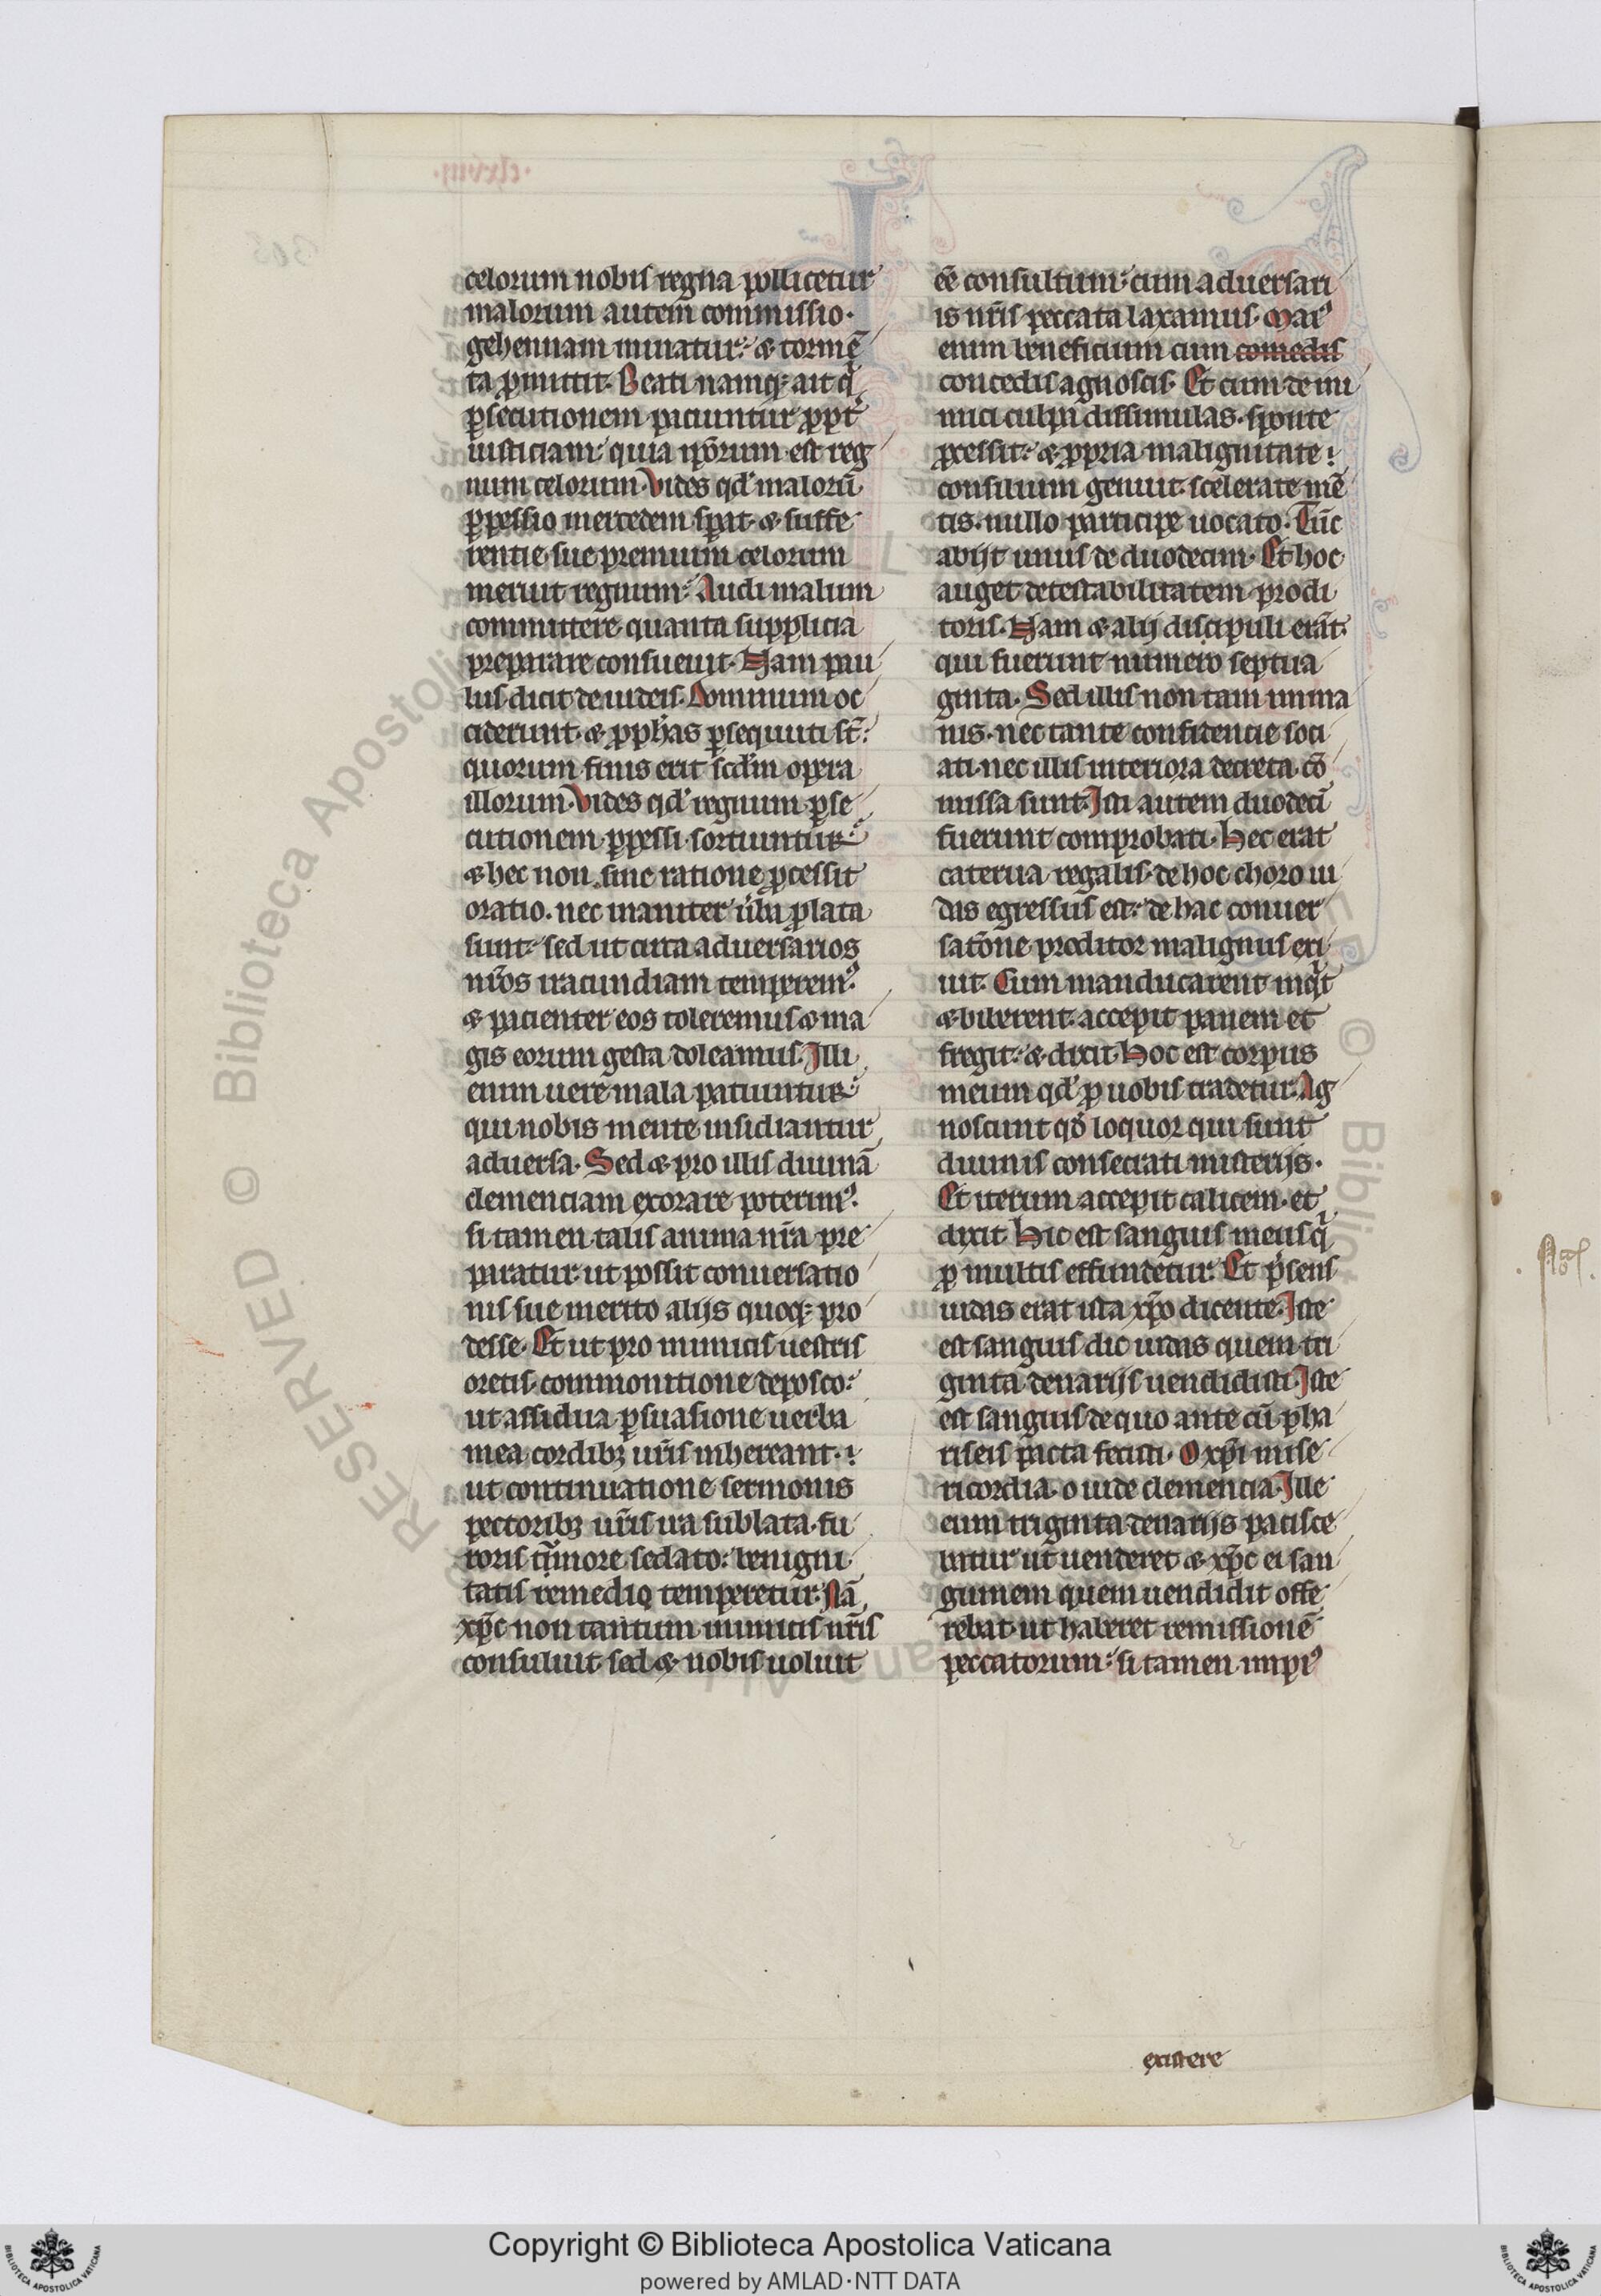 celorum nobis regna pollicetur
malorum autem commissio·
gehennam minatur: & tormē
ta p̄mittit. Beati namq; ait q̇
ꝑsecutionem paciuntur ꝓpt̄
iusticiam: quia ip̄orum est reg
num celorum. Vides qd̓ malorū
ꝑpessio mercedem sꝑat. & suffe
rentie sue premium celorum
meruit regnum: Audi malum
committere quanta supplicia
preparare consueuit. Nam pau
lus dicit de iudeis. Dominum oc
ciderunt. & ꝓph̄as ꝑsequuti st̄:
quorum finis erit scd̄m opera
illorum. Vides qd̓ regnum ꝑse
cutionem ꝑpessi sortiuntur:
& hec non sine ratione ꝓcessit
oratio. nec inaniter ūba ꝓlata
sunt: sed ut circa aduersarios
nr̄os iracundiam temperem᷒:
& pacienter eos toleremus & ma
gis eorum gesta doleamus. Illi
enim uere mala patiuntur:
qui nobis mente insidiantur
aduersa. Sed & pro illis diuinā
clemenciam exorare poterim᷒:
si tamen talis anima nr̄a pre
paratur. ut possit conuersatio
nis sue merito alijs quoq; pro
desse. Et ut pro inimicis uestris
oretis commonitione deposco:
ut assidua ꝑsuasione uerba
mea cordibꝫ ur̄is inhereant:
ut continuatione sermonis
pectoribꝫ ur̄is ira sublata. fu
roris timore sedato: benigni
tatis remedio temperetur. Nā
xp̄c non tantum inimicis nr̄is
consuluit sed & nobis uoluit
eē consultum: cum aduersari
is nr̄is peccata laxamus. Mai᷒
enim beneficium cum comedis
concedis agnoscis. Et cum de ini
mici culpa dissimulas. sponte
ꝓcessit: & ꝓpria malignitate:
consilium genuit. scelerate mē
tis. nullo participe uocato. Tūc
abijt unus de duodecim. Et hoc
auget detestabilitatem prodi
toris. Nam & alij discipuli erāt
qui fuerunt numero septua
ginta. Sed illis non tam imma
nis. nec tante confidencie soci
ati. nec illis interiora decreta cō
missa sunt. Isti autem duodecī
fuerunt comprobati. Hec erat
caterua regalis. de hoc choro iu
das egressus est: de hac conuer
satōne proditor malignus exi
uit. Cum manducarent inq̇t
& biberent. accepit panem et
fregit: & dixit. Hoc est corpus
meum qd̓ ꝓ uobis tradetur. Ag
noscunt qd̓ loquor qui sunt
diuinis consecrati misterijs.
Et iterum accepit calicem. et
dixit Hic est sanguis meus q̇
ꝓ multis effundetur. Et p̄sens
iudas erat ista xp̄o dicente. Iste
est sanguis dic iudas quem tri
ginta denarijs uendidisti. Iste
est sanguis de quo ante cū pha
riseis pacta fecisti. O xp̄i mise
ricordia. o iude demencia. Ille
eum triginta denarijs pacisce
batur ut uenderet & xp̄c ei san
guinem quem uendidit offe
rebat. ut haberet remissionē
peccatorum: si tamen impi᷒
existere
RESERVED © Biblioteca Apostolic
© Bibliot
Copyright © Biblioteca Apostolica Vaticana
powered by AMLAD·NTT DATA
BIBLIOTECA APOSTOLICA VATICANA
BIBLIOTECA APOSTOLICA VATICANA